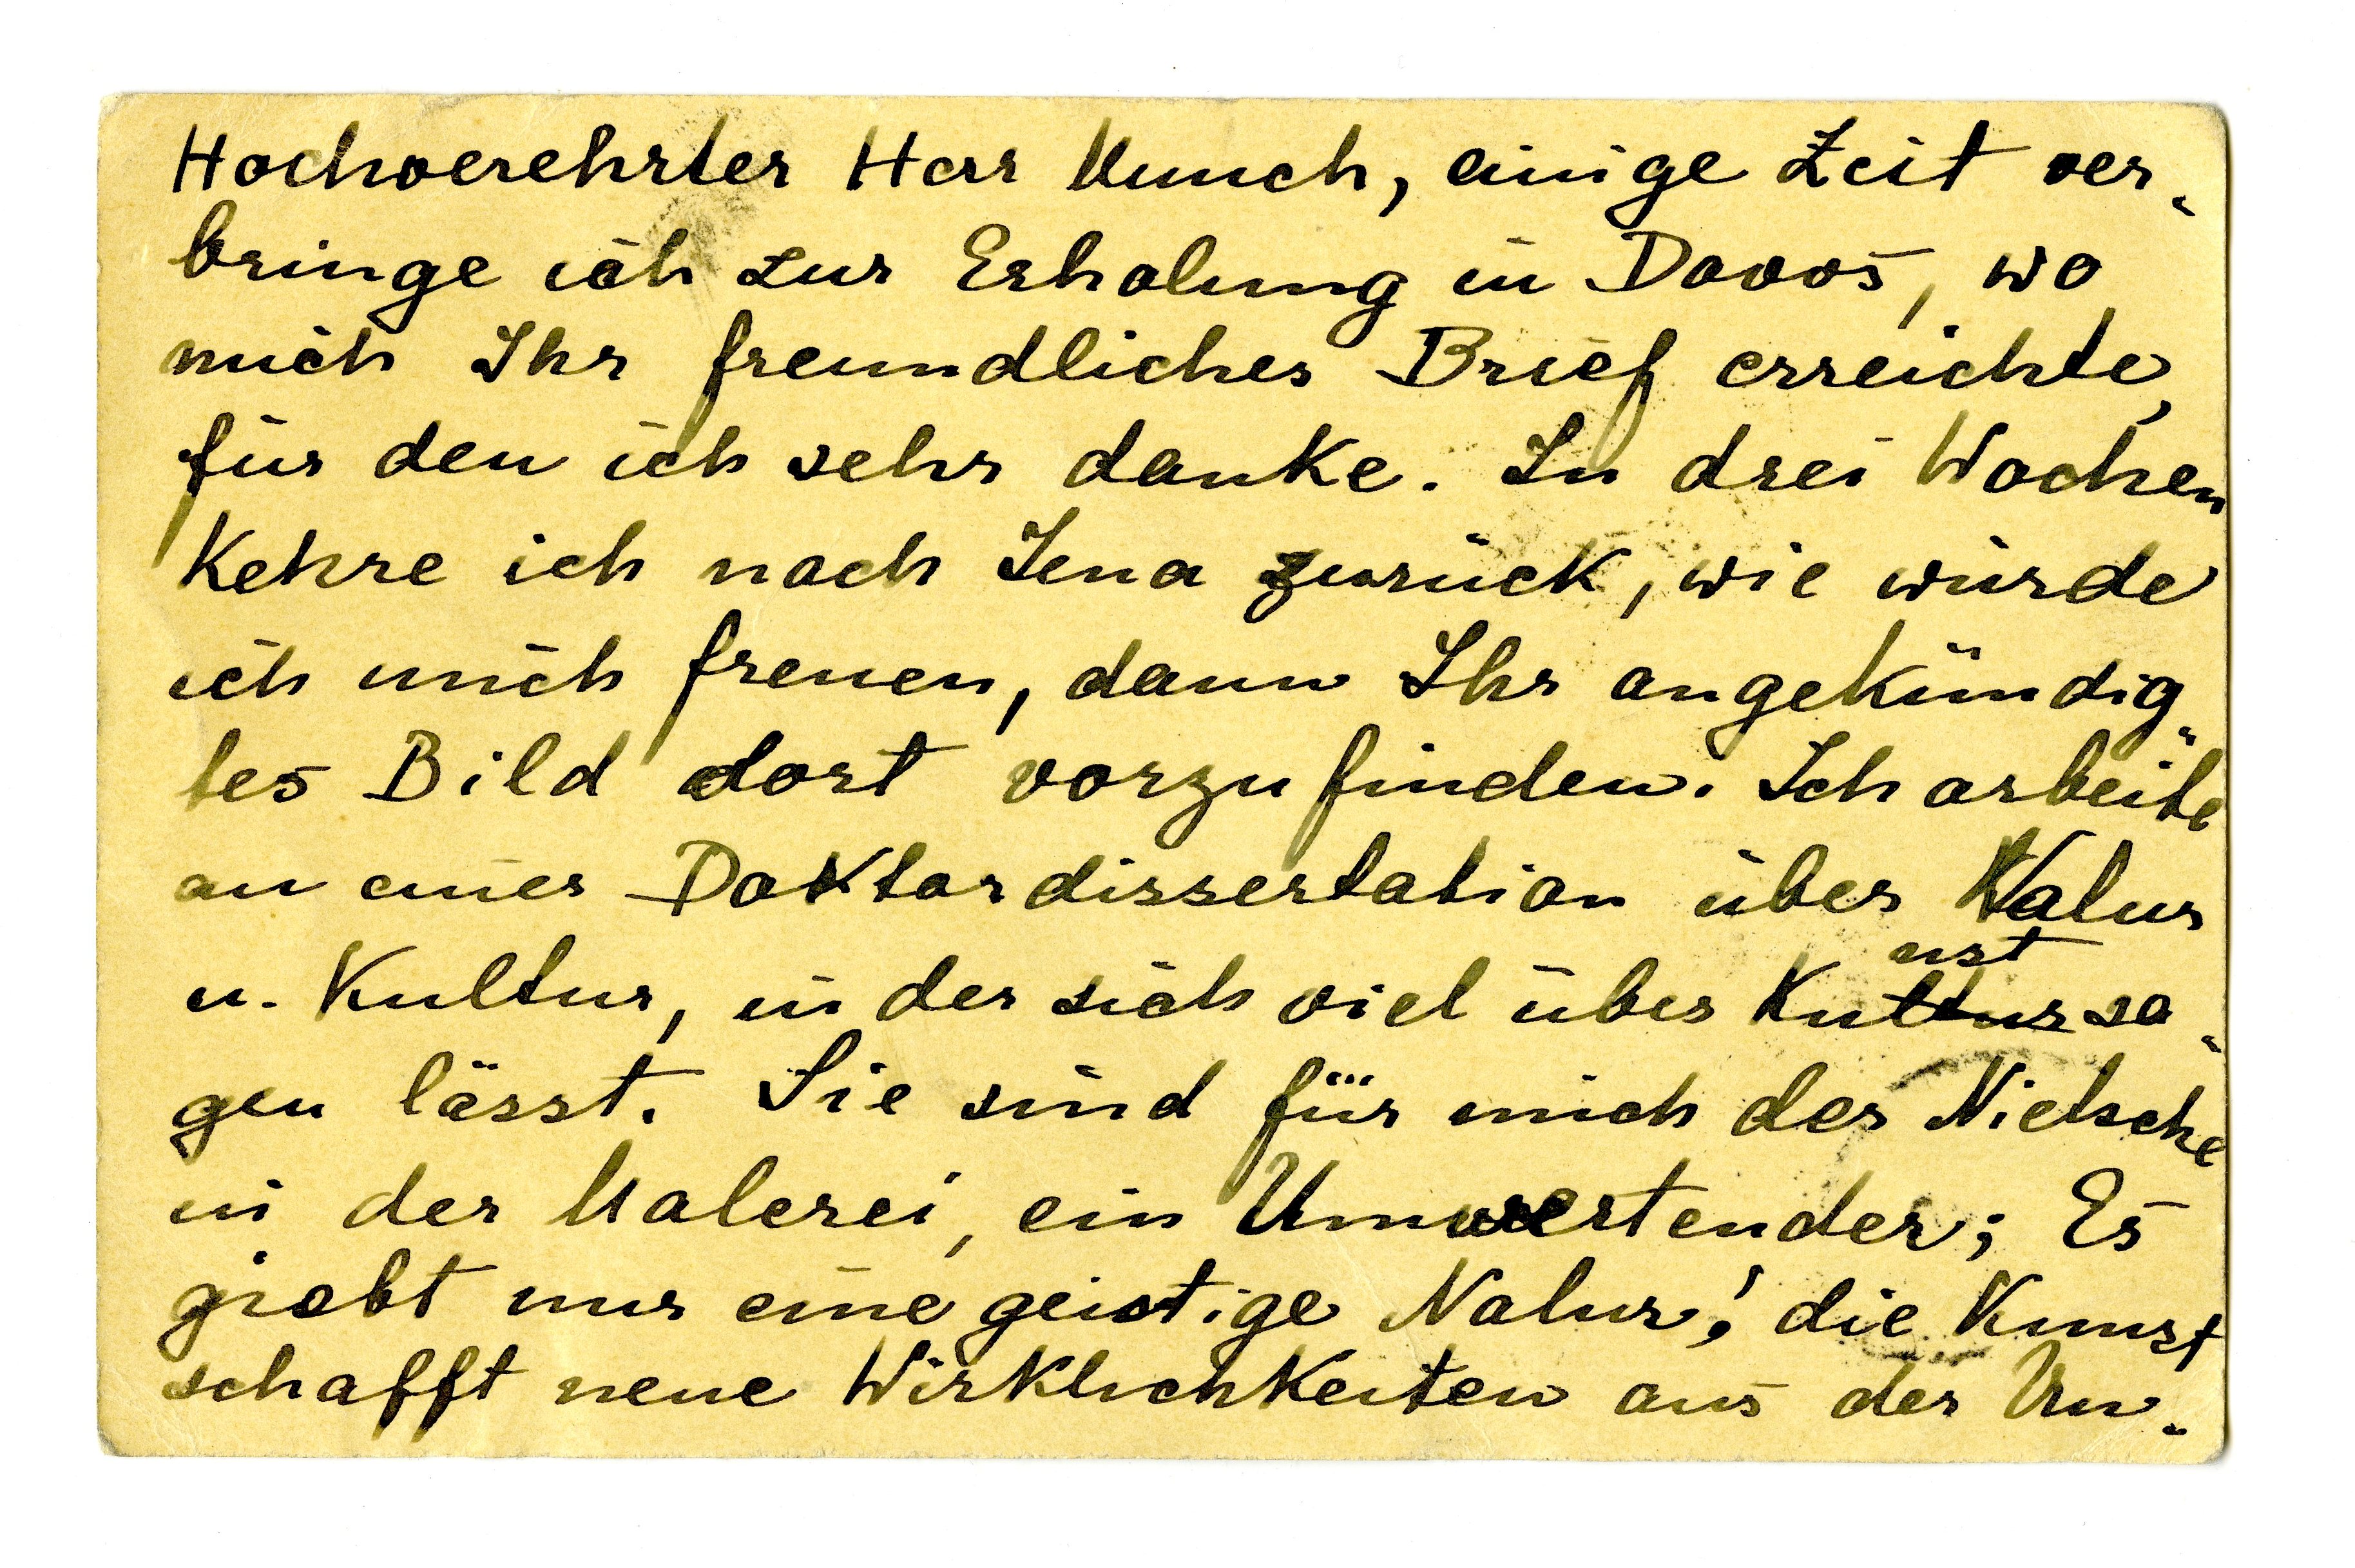 Hochverehrter Herr Munch, einige Zeit ver-
bringe ich zur Erholung in Davos, wo
mich Ihr freundlicher Brief erreichte,
für den ich sehr danke. In drei Wochen
kehre ich nach Jena zurück, wie würde
ich mich freuen, dann Ihr angekündig-
tes Bild dort vorzufinden. Ich arbeite
an einer Doktordissertation über Natur
u. Kultur, in der sich viel über Kunst sa-
gen lässt. Sie sind für mich der Nietsche
in der Malerei, ein Umwertender; Es
giebt nur eine geistige Natur; die Kunst
schafft neue Wirklichkeiten aus der Um-